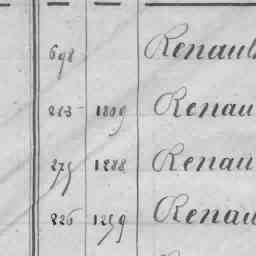 698 Renault
283 1209 Renau
275 1288 Renau
226 1259 Renau